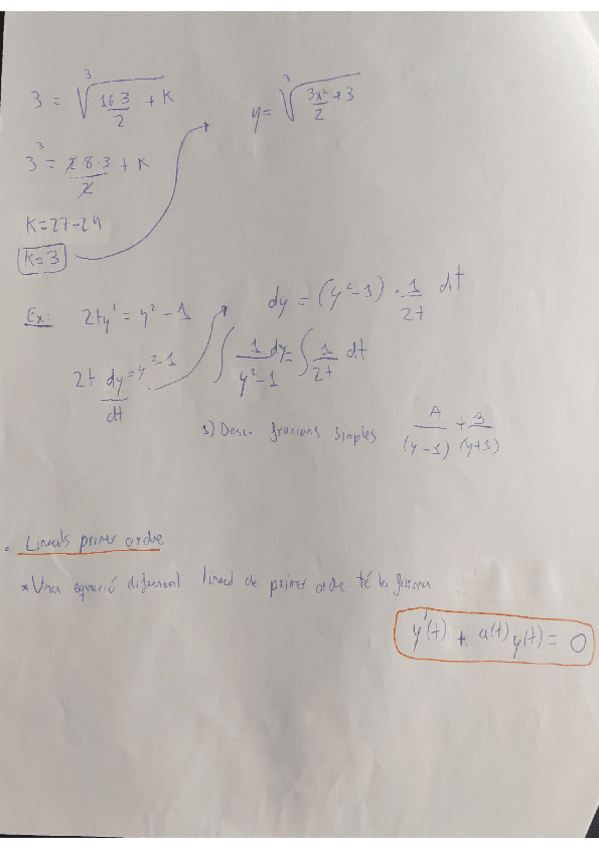 3 = ∛(16·3/2 + K)
y = ∛(3x²+3/2)
3³ = 2·8·3/2 + K
K=27-24
K=3
Ex: 2ty' = y² - 1
2t dy/dt = y² - 1
dy = (y²-1) · 1/2t dt
∫ 1/y²-1 dy = ∫ 1/2t dt
1) Desc. fraccions simples A/(y-1) + B/(y+1)
• Lineals primer ordre
* Una equació diferencial lineal de primer ordre té la forma
y'(t) + a(t) y(t) = 0